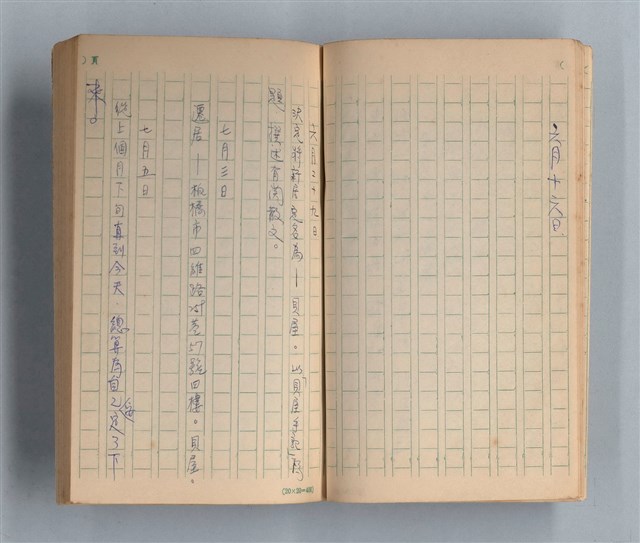 六月十六日
六月二十九日
決定將新居定名為——貝屋。以「貝屋手記」為
題 撰述有関散文。
七月三日
寓居——板橋市四維路 巷 號四樓。貝屋。
七月五日
從上個月下旬直到今天,總算為自己安定了下
來。
頁
(20×20=400)